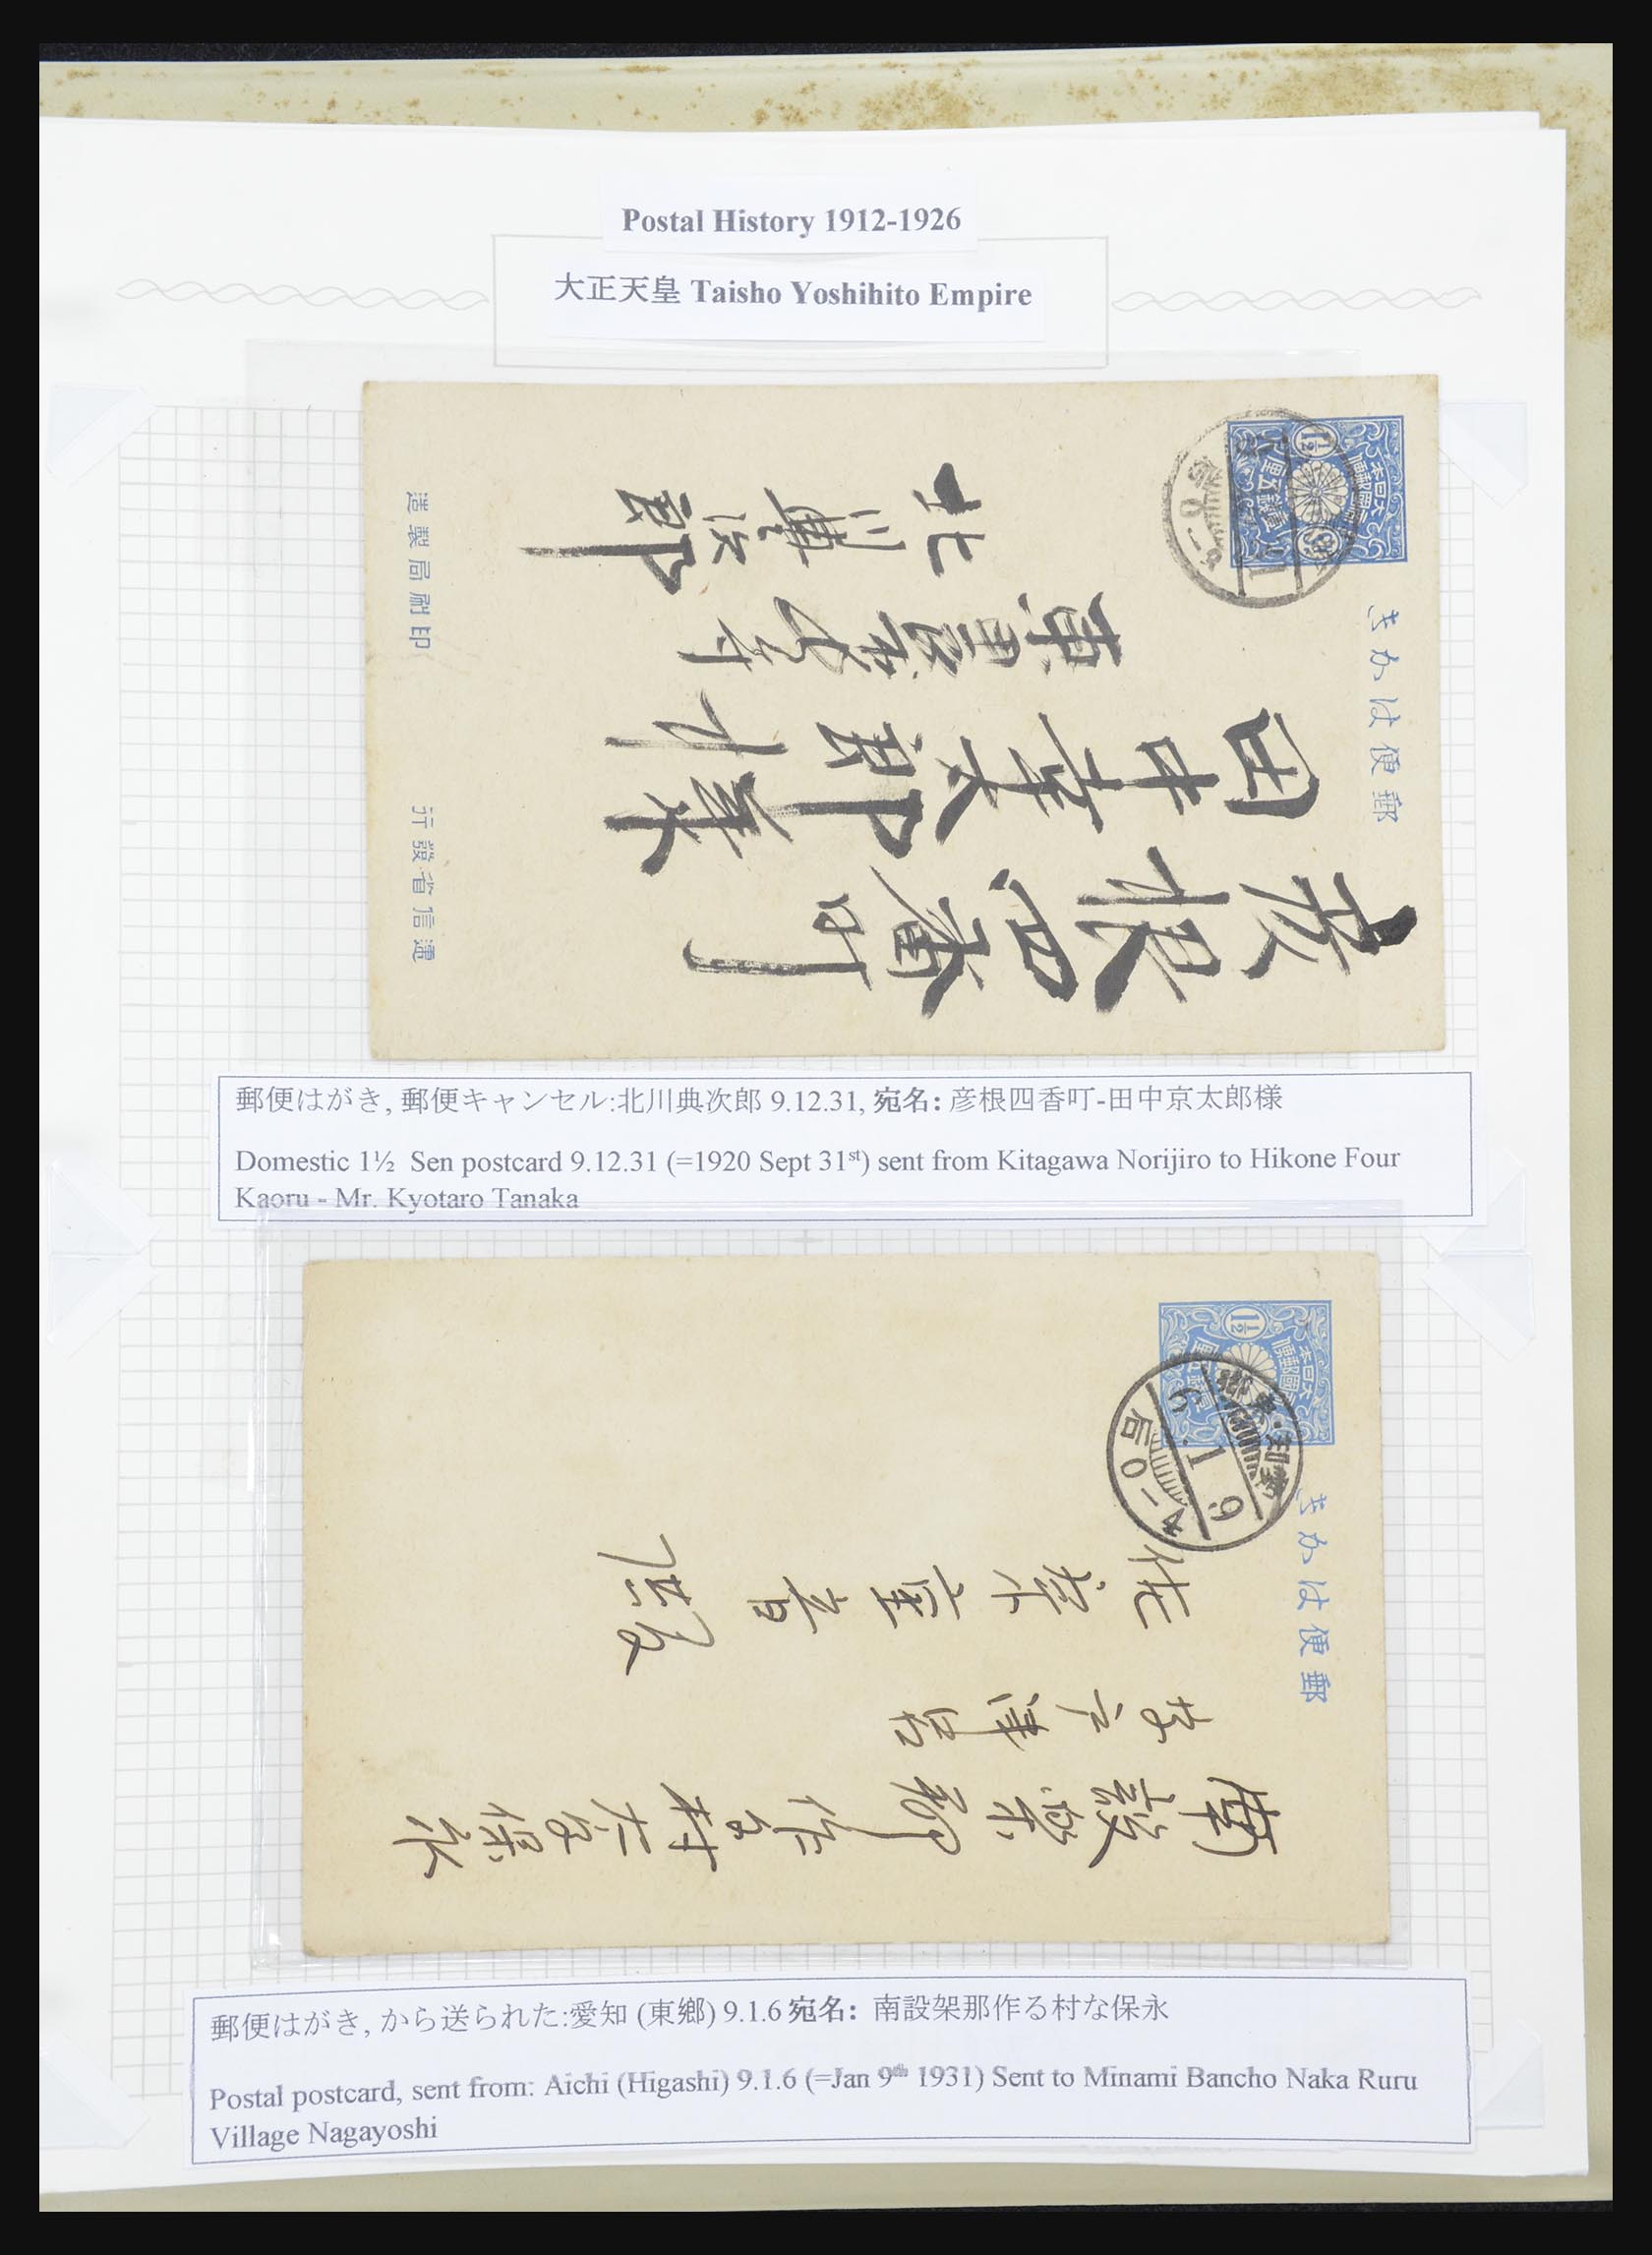 Postal History 1912-1926
大正天皇 Taisho Yoshihito Empire
大日本帝國郵便
壹錢五厘
1½
郵便はかき
彦根四番町
田中幸太郎様
北川
逓信省發行
印刷局製造
郵便はがき, 郵便キャンセル:北川典次郎 9.12.31, 宛名: 彦根四香町-田中京太郎様
Domestic 1½ Sen postcard 9.12.31 (=1920 Sept 31st) sent from Kitagawa Norijiro to Hikone Four
Kaoru - Mr. Kyotaro Tanaka
大日本帝國郵便
1½
愛知・東郷
9.1.6
后0-
郵便はかき
南設楽郡作手村大字保永
郵便はがき, から送られた:愛知 (東郷) 9.1.6 宛名: 南設架那作る村な保永
Postal postcard, sent from: Aichi (Higashi) 9.1.6 (=Jan 9th 1931) Sent to Minami Bancho Naka Ruru
Village Nagayoshi